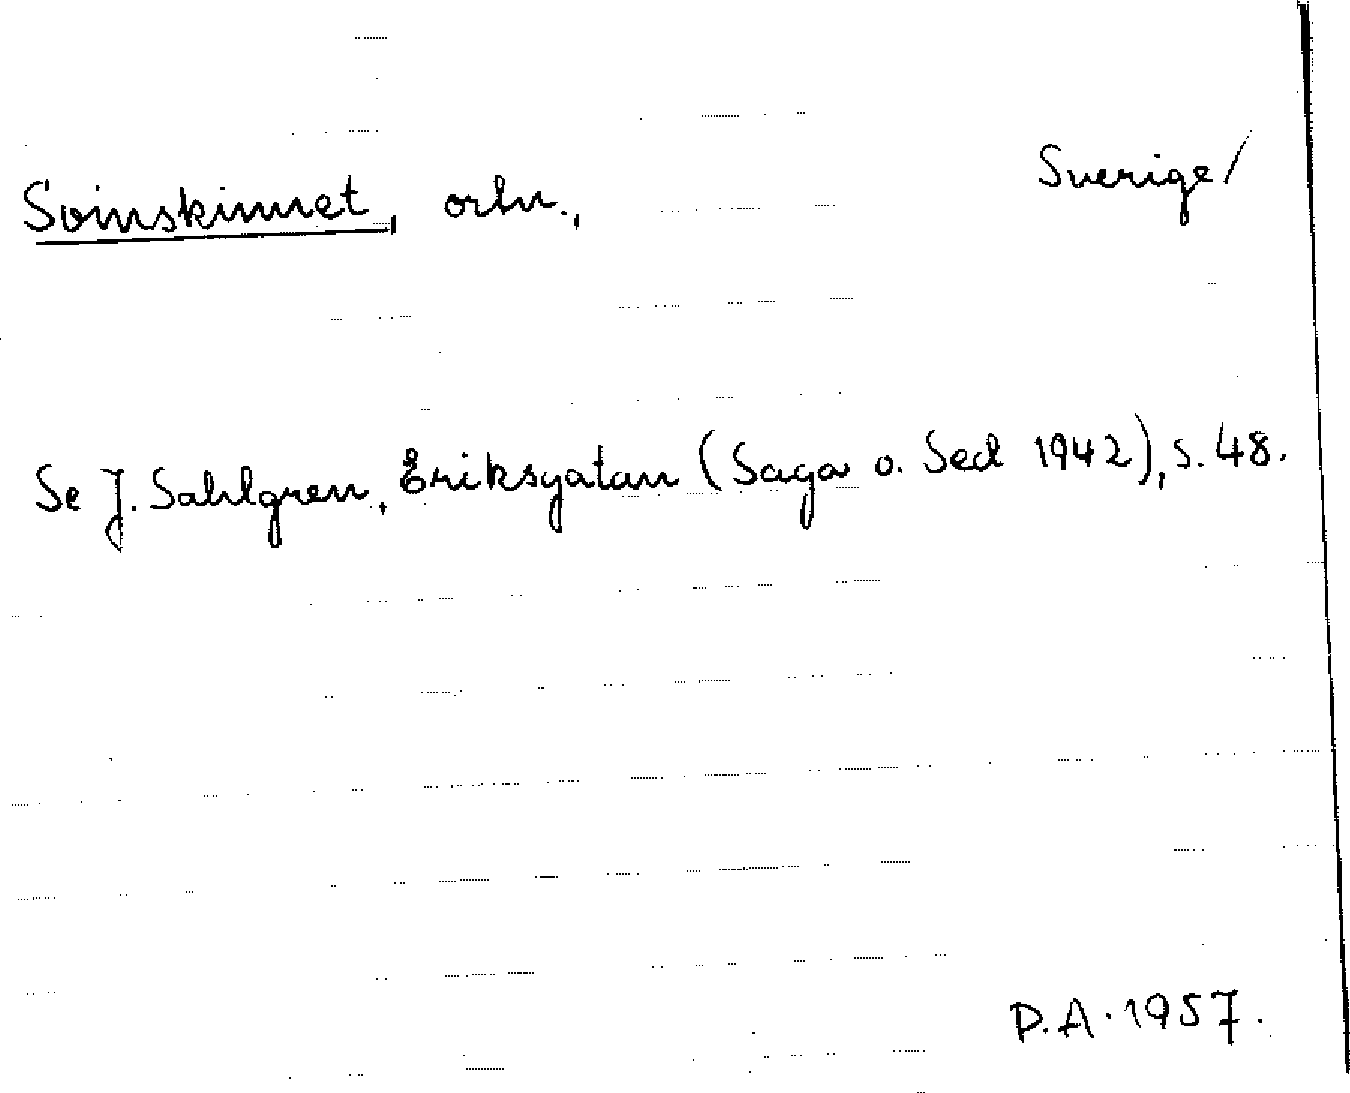 Svinskinnet, ortn., Sverige/
Se J. Sahlgren, Eriksgatan (Saga o. Sed 1942), s. 48.
P.A. 1957.